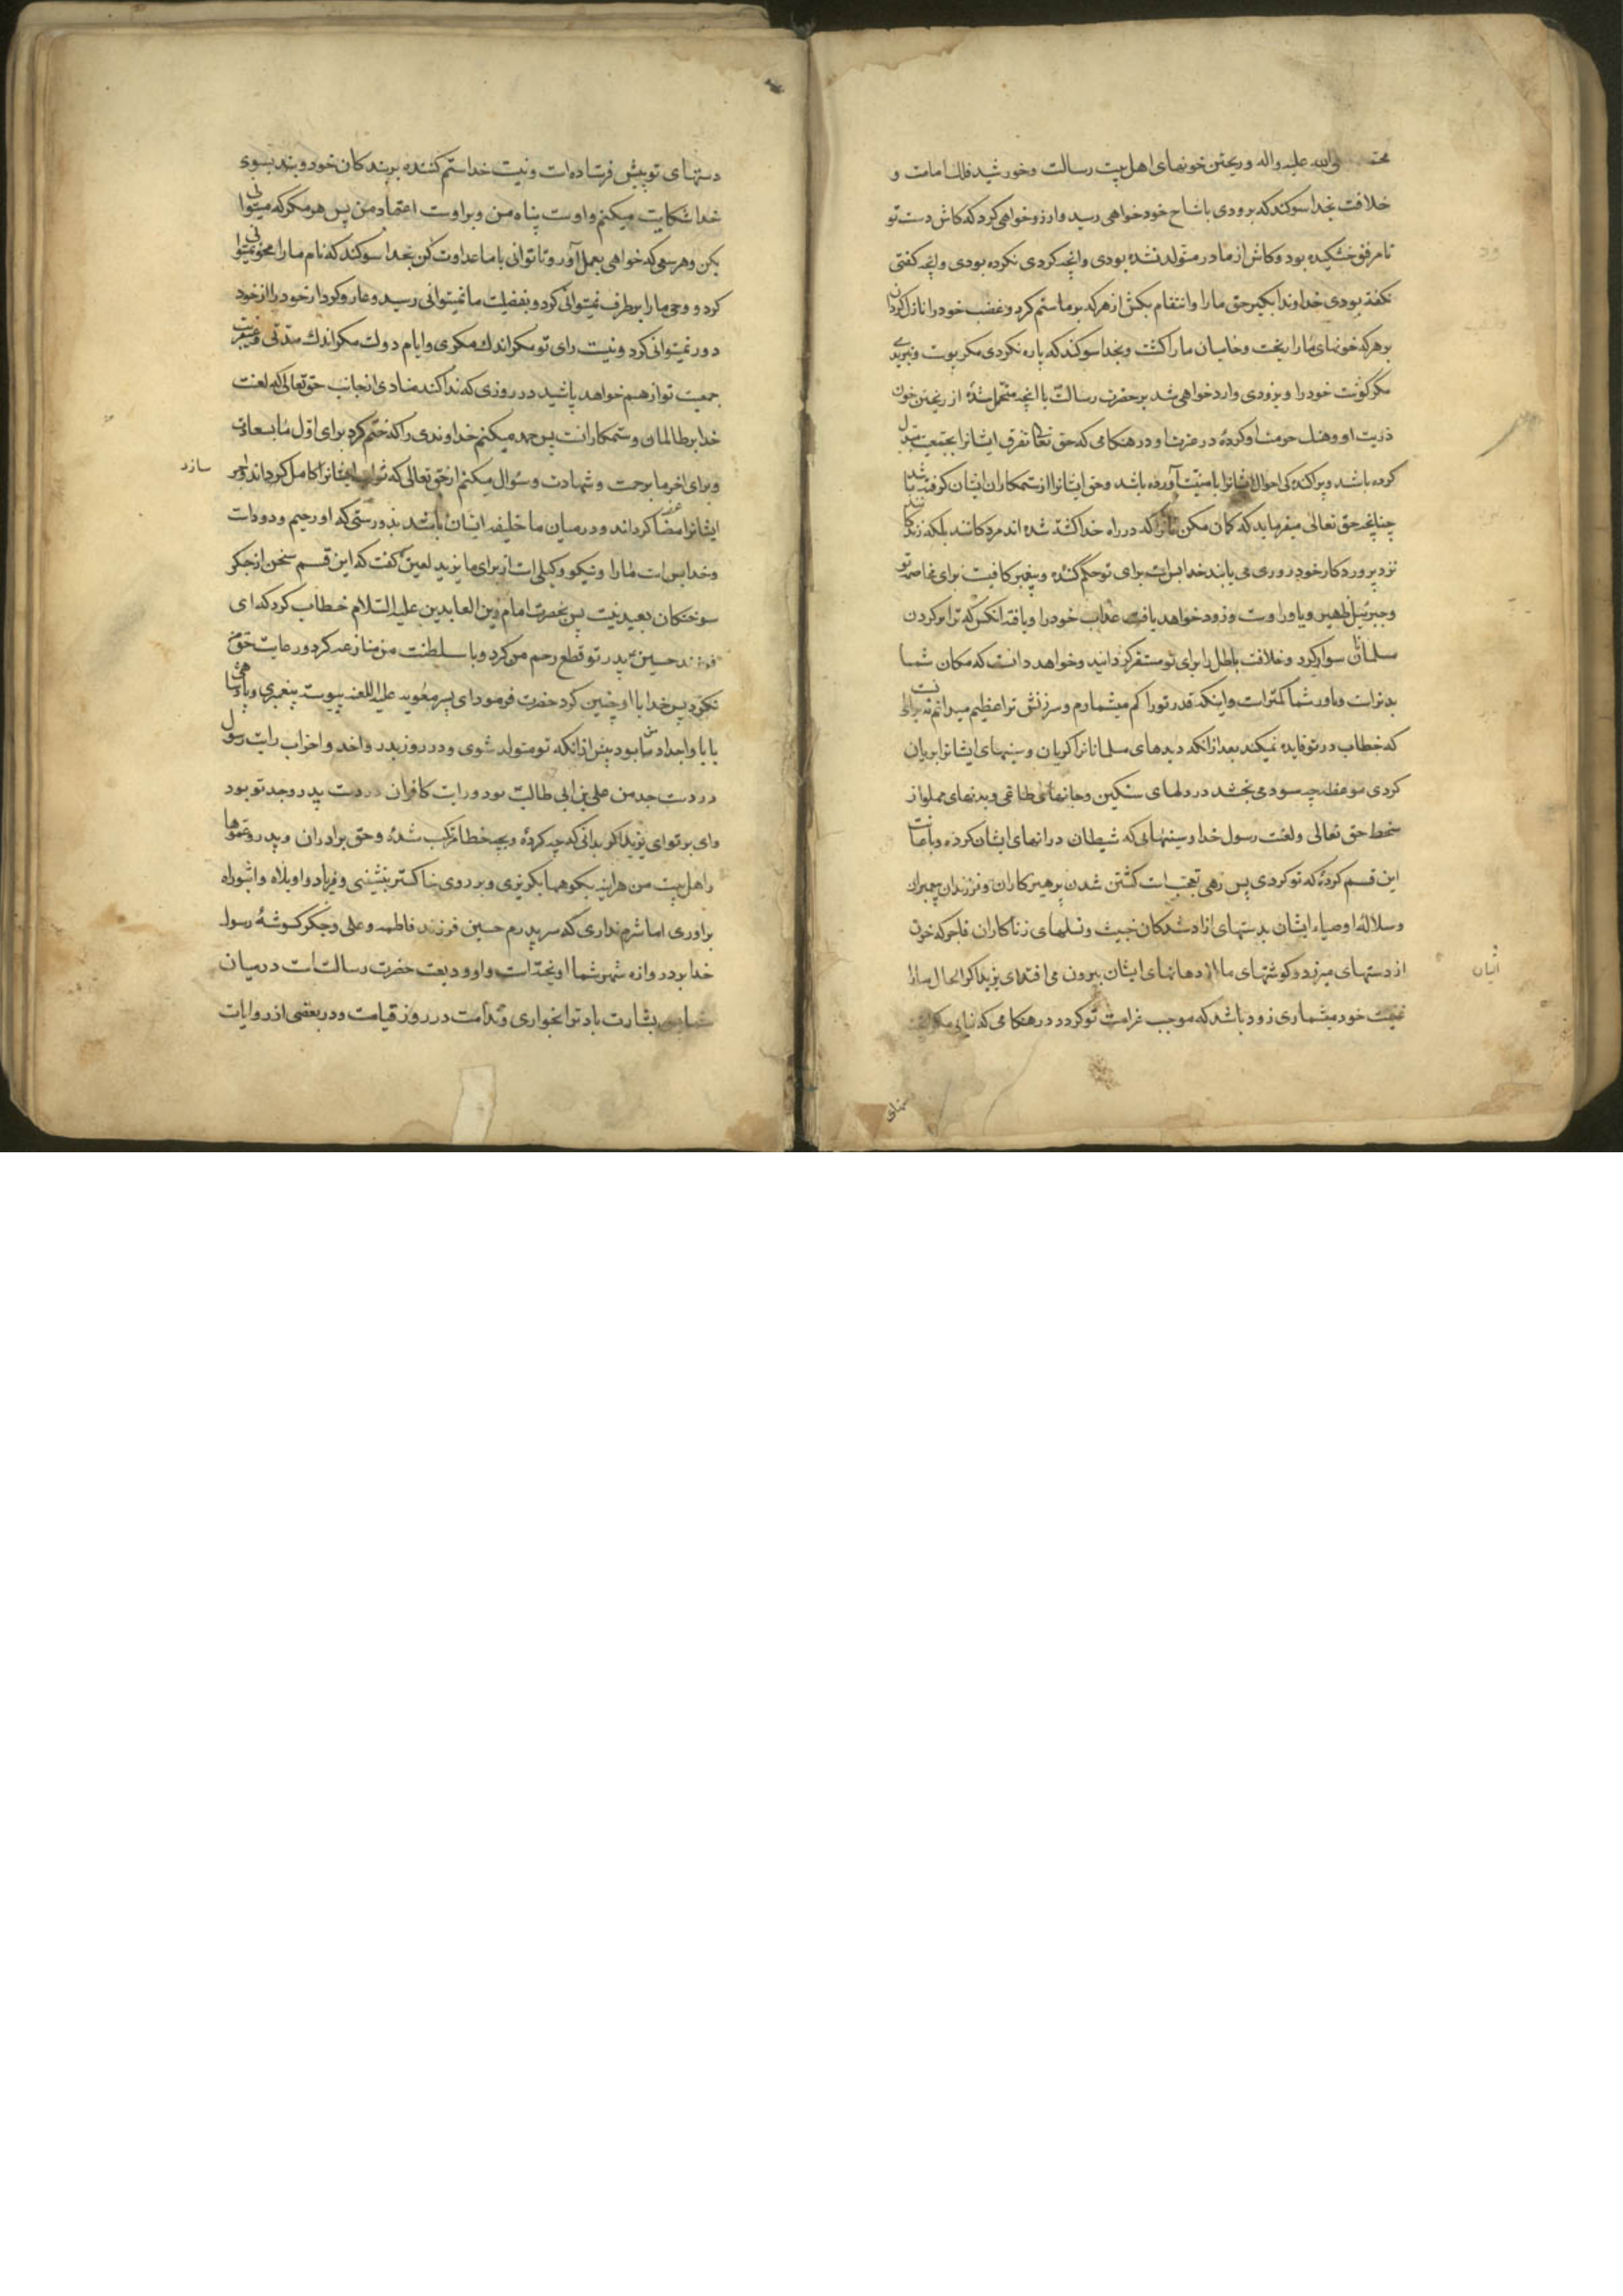 صلی الله علیه واله وریختن خونهای اهل بیت رسالت وخورشید فلك امامت و
خلافت بخدا سوکند که بزودی باشاح خود خواهی رسید وارزو خواهی کرد که کاش دست تو
تا مرفق خشکیده بود وکاش از مادر متولد نشده بودی وانچه کردی نکرده بودی وانچه کفتی
نکفته بودی خداوندا بکیر حق ما را وانتقام بکش از هرکه بر ما ستم کرد وغضب خود را نازل کردان
بر هرکه خونهای ما را ریخت وحامیان ما را کشت وبخدا سوکند که پاره نکردی مکر پوست و نبریدی
مکر کوشت خود را و بزودی وارد خواهی شد بر حضرت رسالت با انچه متحمل شدۀ از ریختن خون
ذریت او وهتك حرمت او کردۀ در عترت او در هنکامی که حق تعالی تفرق ایشانرا بجمعیت مبدل
کرده باشد وپراکندکی احوال ایشانرا بامنیت آورده باشد وحق ایشانرا از ستمکاران ایشان کرفته باشد
چنانچه حق تعالی میفرماید که کمان مکن انانرا که در راه خدا کشته شده اند مردکانند بلکه زندکانند
نزد پروردکار خود روزی می یابند خدا بس است برای تو حکم کننده وپیغمبر کافیست برای مخاصمه تو
وجبرئیل ظهیر ویاور اوست وزود خواهد یافت عذاب خود را ویافته انکس که ترا بر کردن
مسلمانان سوار کرد وخلافت باطل را برای تو مستقر کردانید وخواهد دانست که مکان شما
بدتر است ویاور شما کمتر است واینکه قدر تو را کم میشمارم وسرزنش ترا عظیم میدانم نه برای
که خطاب در تو فایده نمیکند بعد از انکه دیدهای مسلمانانرا کریان وسینهای ایشانرا بریان
کردی موعظه چه سود می بخشد در دلهای سنکین وجانهای طاغی وبدنهای مملو از
سخط حق تعالی ولعنت رسول خدا وسینهایی که شیطان در انهای ایشان کرده وباعانت
این قسم کردۀ که تو کردی پس زهی تعجب است کشتن شدن پرهیزکاران وفرزندان پیمبران
وسلالۀ اوصیاء ایشان بدستهای ازاد شدکان خبیث ونسلهای زناکاران فاجر که خون
از دستهای میریزد وکوشتهای ما از دهانهای ایشان بیرون می افتد ای یزید اکر الحال ما را
ایشان
غنیمت خود میشماری زود باشد که موجب غرامت تو کردد در هنکامی که نیابی مکر انچه
دستهای
دستهای تو پیش فرستاده است ونیست خدا ستم کننده بر بندکان خود وبند بسوی
خدا شکایت میکنم واوست پناه من وبر اوست اعتماد من پس هر مکر که میتوانی
بکن وهر سعی که خواهی بعمل آور وتا توانی با ما عداوت کن بخدا سوکند که نام ما را محو نمیتوانی
کرد و وحی ما را بر طرف نمیتوانی کرد وبفضیلت ما نمیتوانی رسید وعار وکردار خود را از خود
دور نمیتوانی کرد ونیست رای تو مکر اندك مکری وایام دولت مکر اندك مدتی
جمعیت تو از هم خواهد پاشید در روزی که ندا کند منادی از جانب حق تعالی که لعنت
خدا بر ظالمان وستمکارانست پس حمد میکنم خداوندی را که ختم کرد برای اول ما بسعادت
وبرای اخر ما برحمت وشهادت وسؤال میکنم از حق تعالی که ثواب ایشانرا کامل کرداند واجر
سازد
ایشانرا مضاعف کرداند ودر میان ما خلیفه ایشان باشد بدرستی که او رحیم و ودود است
وخدا بس است ما را ونیکو وکیلی است از برای ما یزید لعین کفت که این قسم سخن از جکر
سوختکان بعید نیست پس بحضرت امام زین العابدین علیه السلام خطاب کرد که ای
فرزند حسین پدر تو قطع رحم من کرد وبا سلطنت من منازعه کرد ورعایت حق من
نکرد پس خدا با او چنین کرد حضرت فرمود ای پسر معویه علیه اللعنه پیوسته پیغمبری وپادشاهی
با یا واجداد من بود پیش از انکه تو متولد شوی ودر روز بدر واحد واحزاب رایت رسول
در دست جد من علی بن ابی طالب بود ورایت کافران در دست پدر وجد تو بود
وای بر تو ای یزید اکر بدانی که چه کردۀ وبچه خطا مرتکب شدۀ وحق برادران وپدر وعموها
واهل بیت من هراینه بکوهها بکریزی وبر روی خاکستر بنشینی وفریاد واویلاه واثبوراه
براوری اما شرم نداری که سر پدرم حسین فرزند فاطمه وعلی وجکر کوشۀ رسول
خدا بر دروازه شهر شما اویخته است واو ودیعت حضرت رسالت است در میان
شما پس بشارت باد ترا بخواری وندامت در روز قیامت ودر بعضی از روایات